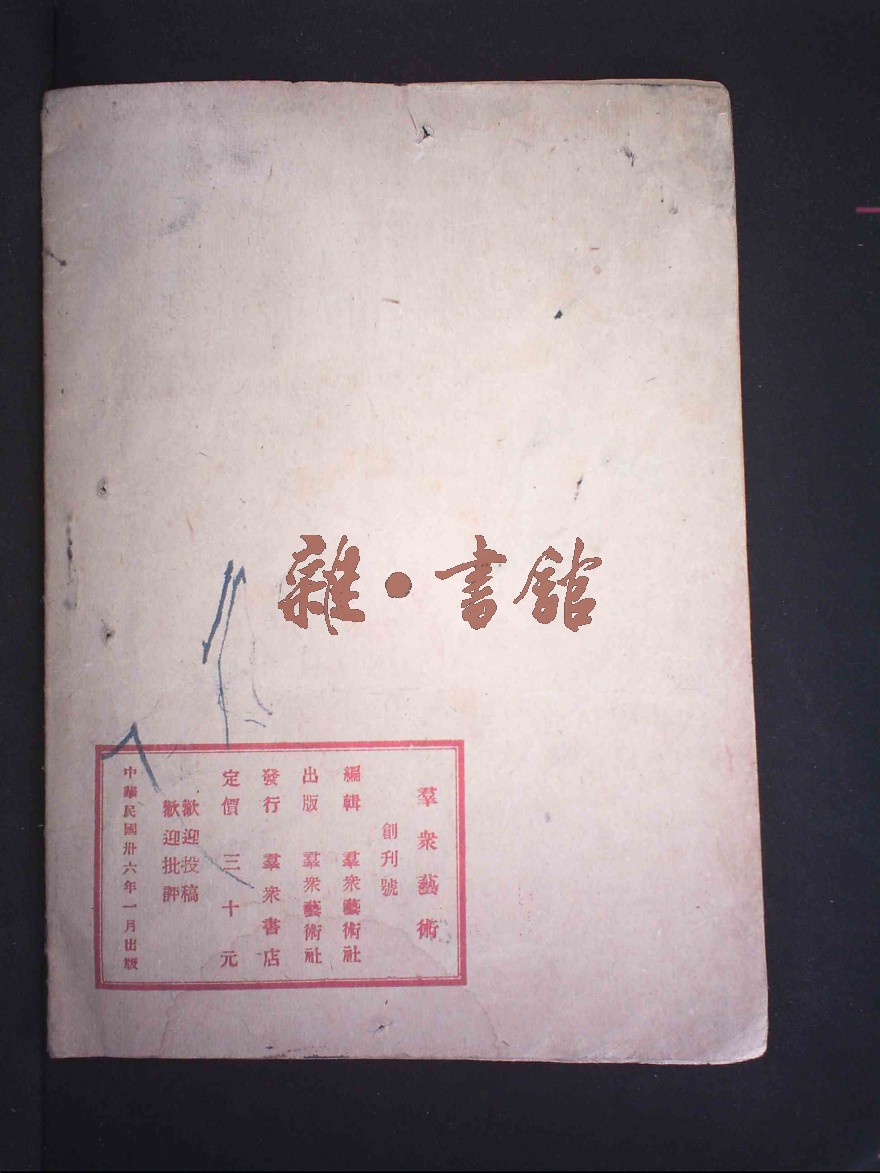 雜·書舘
羣衆藝術
創刊號
編輯 羣衆藝術社
出版 羣衆藝術社
發行 羣衆書店
定價 三十元
歡迎投稿
歡迎批評
中華民國卅六年一月出版